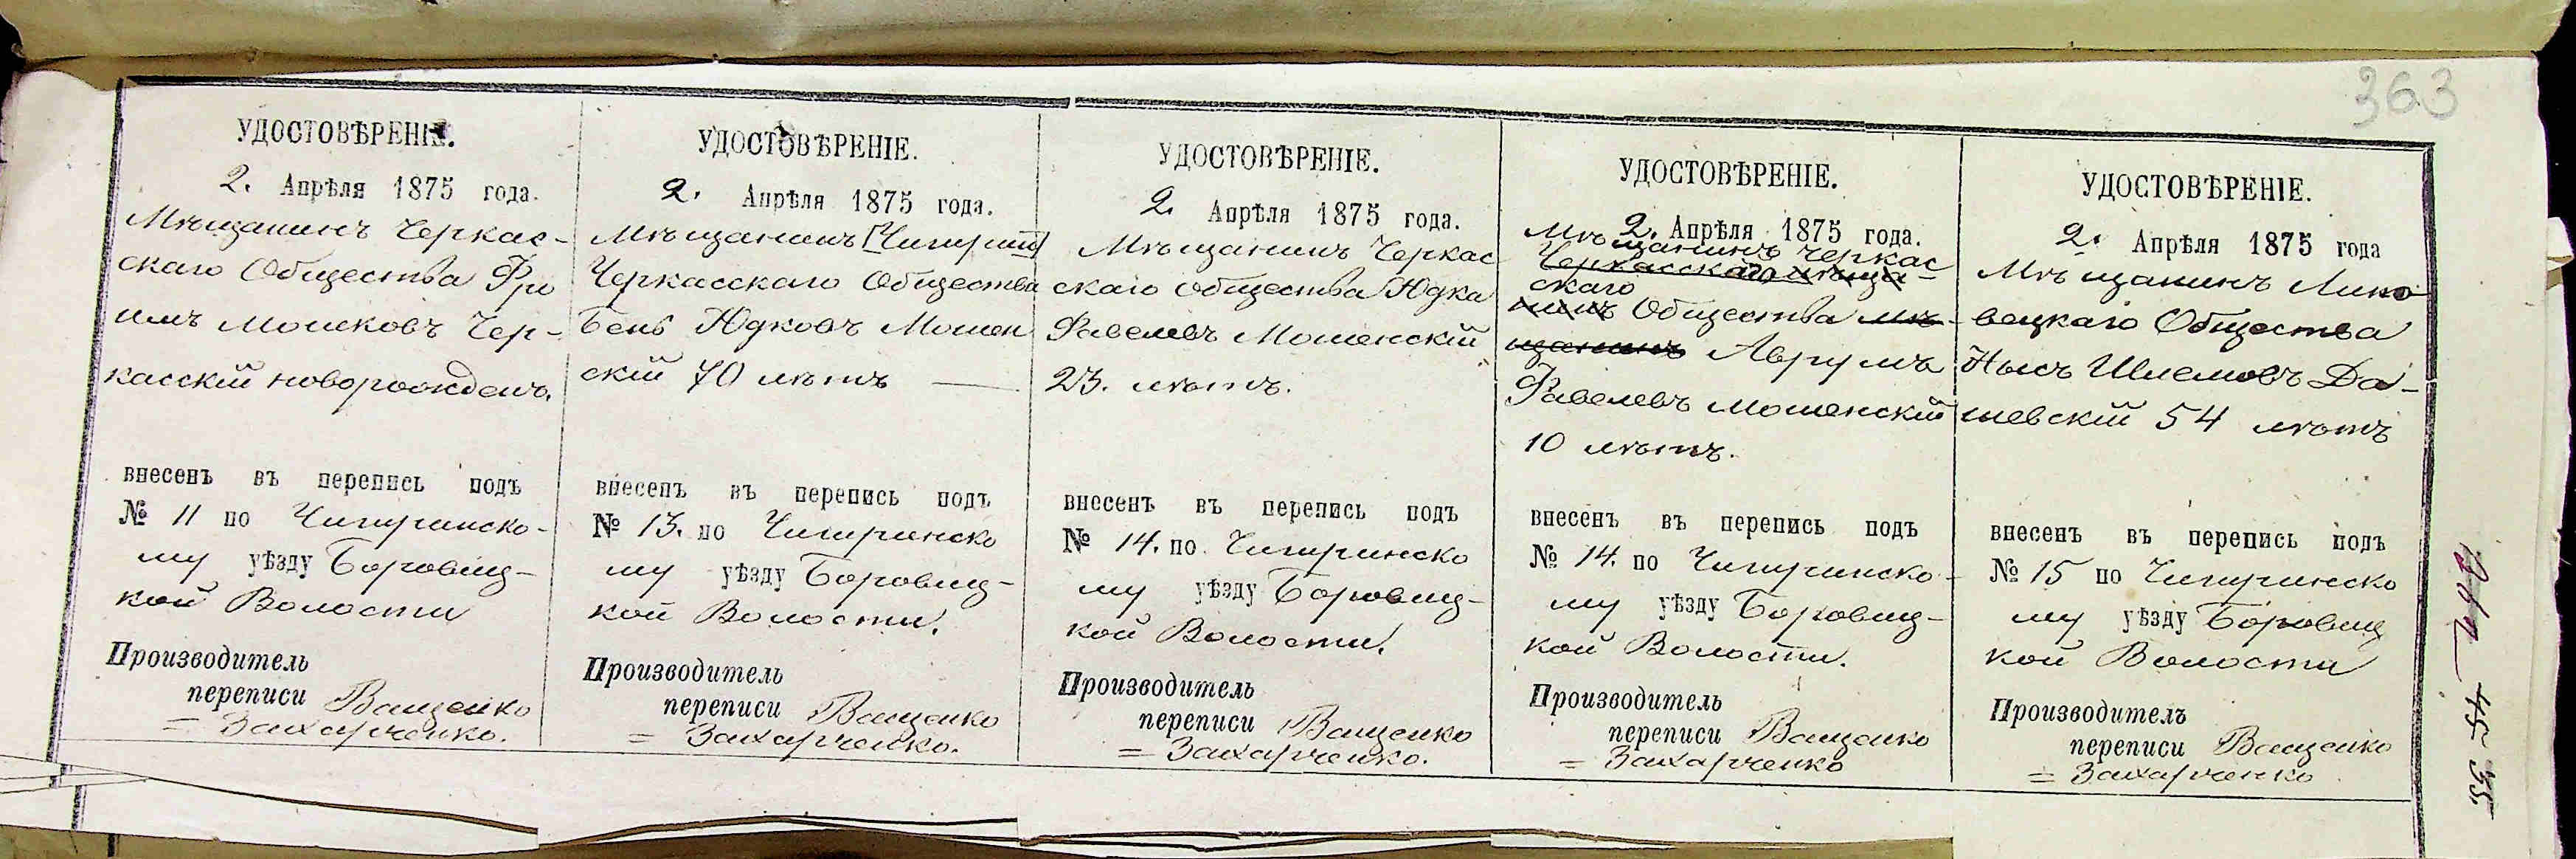 363
УДОСТОВѢРЕНІЕ.
2. Апрѣля 1875 года.
Мѣщанинъ Черкас-
скаго Общества Фро
имъ Мошковъ Чер-
касскій новорожденъ.
внесенъ въ перепись подъ
№ 11 по Чигиринско-
му уѣзду Боровиц-
кой Волости
Производитель
переписи Ващенко
= Захарченко.
УДОСТОВѢРЕНІЕ.
2. Апрѣля 1875 года.
Мѣщанинъ [Чигирин]
Черкасскаго Общества
Бень Юдковъ Мошен
скій 70 лѣтъ —
внесенъ въ перепись подъ
№ 13. по Чигиринско
му уѣзду Боровиц-
кой Волости.
Производитель
переписи Ващенко
= Захарченко.
УДОСТОВѢРЕНІЕ.
2. Апрѣля 1875 года.
Мѣщанинъ Черкас
скаго Общества Юдка
Фавелевъ Мошенскій
23. лѣтъ.
внесенъ въ перепись подъ
№ 14. по Чигиринско
му уѣзду Боровиц-
кой Волости.
Производитель
переписи Ващенко
= Захарченко.
УДОСТОВѢРЕНІЕ.
2. Апрѣля 1875 года.
Мѣщанинъ Черкас
Черкасскаго мѣща-
скаго
нинъ Общества мѣ-
щанинъ Аврумъ
Фавелевъ Мошенскій
10 лѣтъ.
внесенъ въ перепись подъ
№ 14. по Чигиринско-
му уѣзду Боровиц-
кой Волости.
Производитель
переписи Ващенко
= Захарченко
УДОСТОВѢРЕНІЕ.
2. Апрѣля 1875 года
Мѣщанинъ Липо-
вецкаго Общества
Нысь Шлемовъ Да-
шевскій 54 лѣтъ
внесенъ въ перепись подъ
№ 15 по Чигиринско
му уѣзду Боровиц
кой Волости
Производитель
переписи Ващенко
= Захарченко
45-35